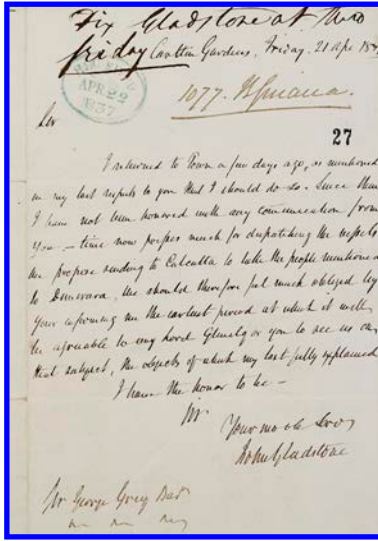 Fix Gladstone at
friday
Carlton Gardens, Friday. 21 Apr 18
APR 22
1837
1077. B Guiana.
Sir
27
I returned to Town a few days ago, as mentioned
in my last respects to you that I should do so. Since then
I have not been honored with any communication from
you — time now presses much for dispatching the vessels
we propose sending to Calcutta to take the people mentioned
to Demerara, we should therefore feel much obliged by
your informing me the earliest period at which it will
be agreeable to my Lord Glenelg or you to see us on
that subject, the objects of which my last fully explained
I have the honor to be —
Sir
Your mo ob Serv
John Gladstone
Sir George Grey Bart